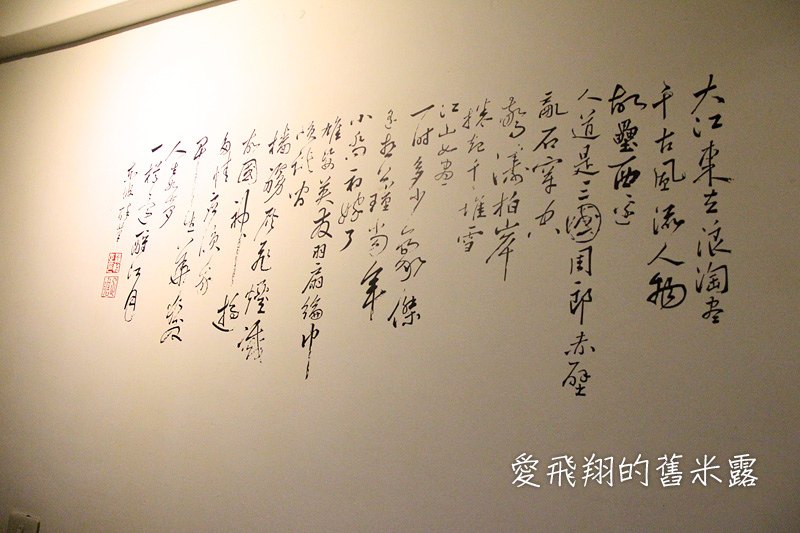 大江東去浪淘盡
千古風流人物
故壘西邊
人道是三國周郎赤壁
亂石穿空
驚濤拍岸
捲起千堆雪
江山如畫
一時多少豪傑
遙想公瑾當年
小喬初嫁了
雄姿英發羽扇綸巾
咲談間
檣櫓灰飛煙滅
故國神遊
多情應笑我
早生華髮
人生如夢
一樽還酹江月
愛飛翔的舊米露